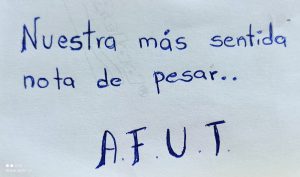 Nuestra más sentida
nota de pesar..
A.F.U.T.